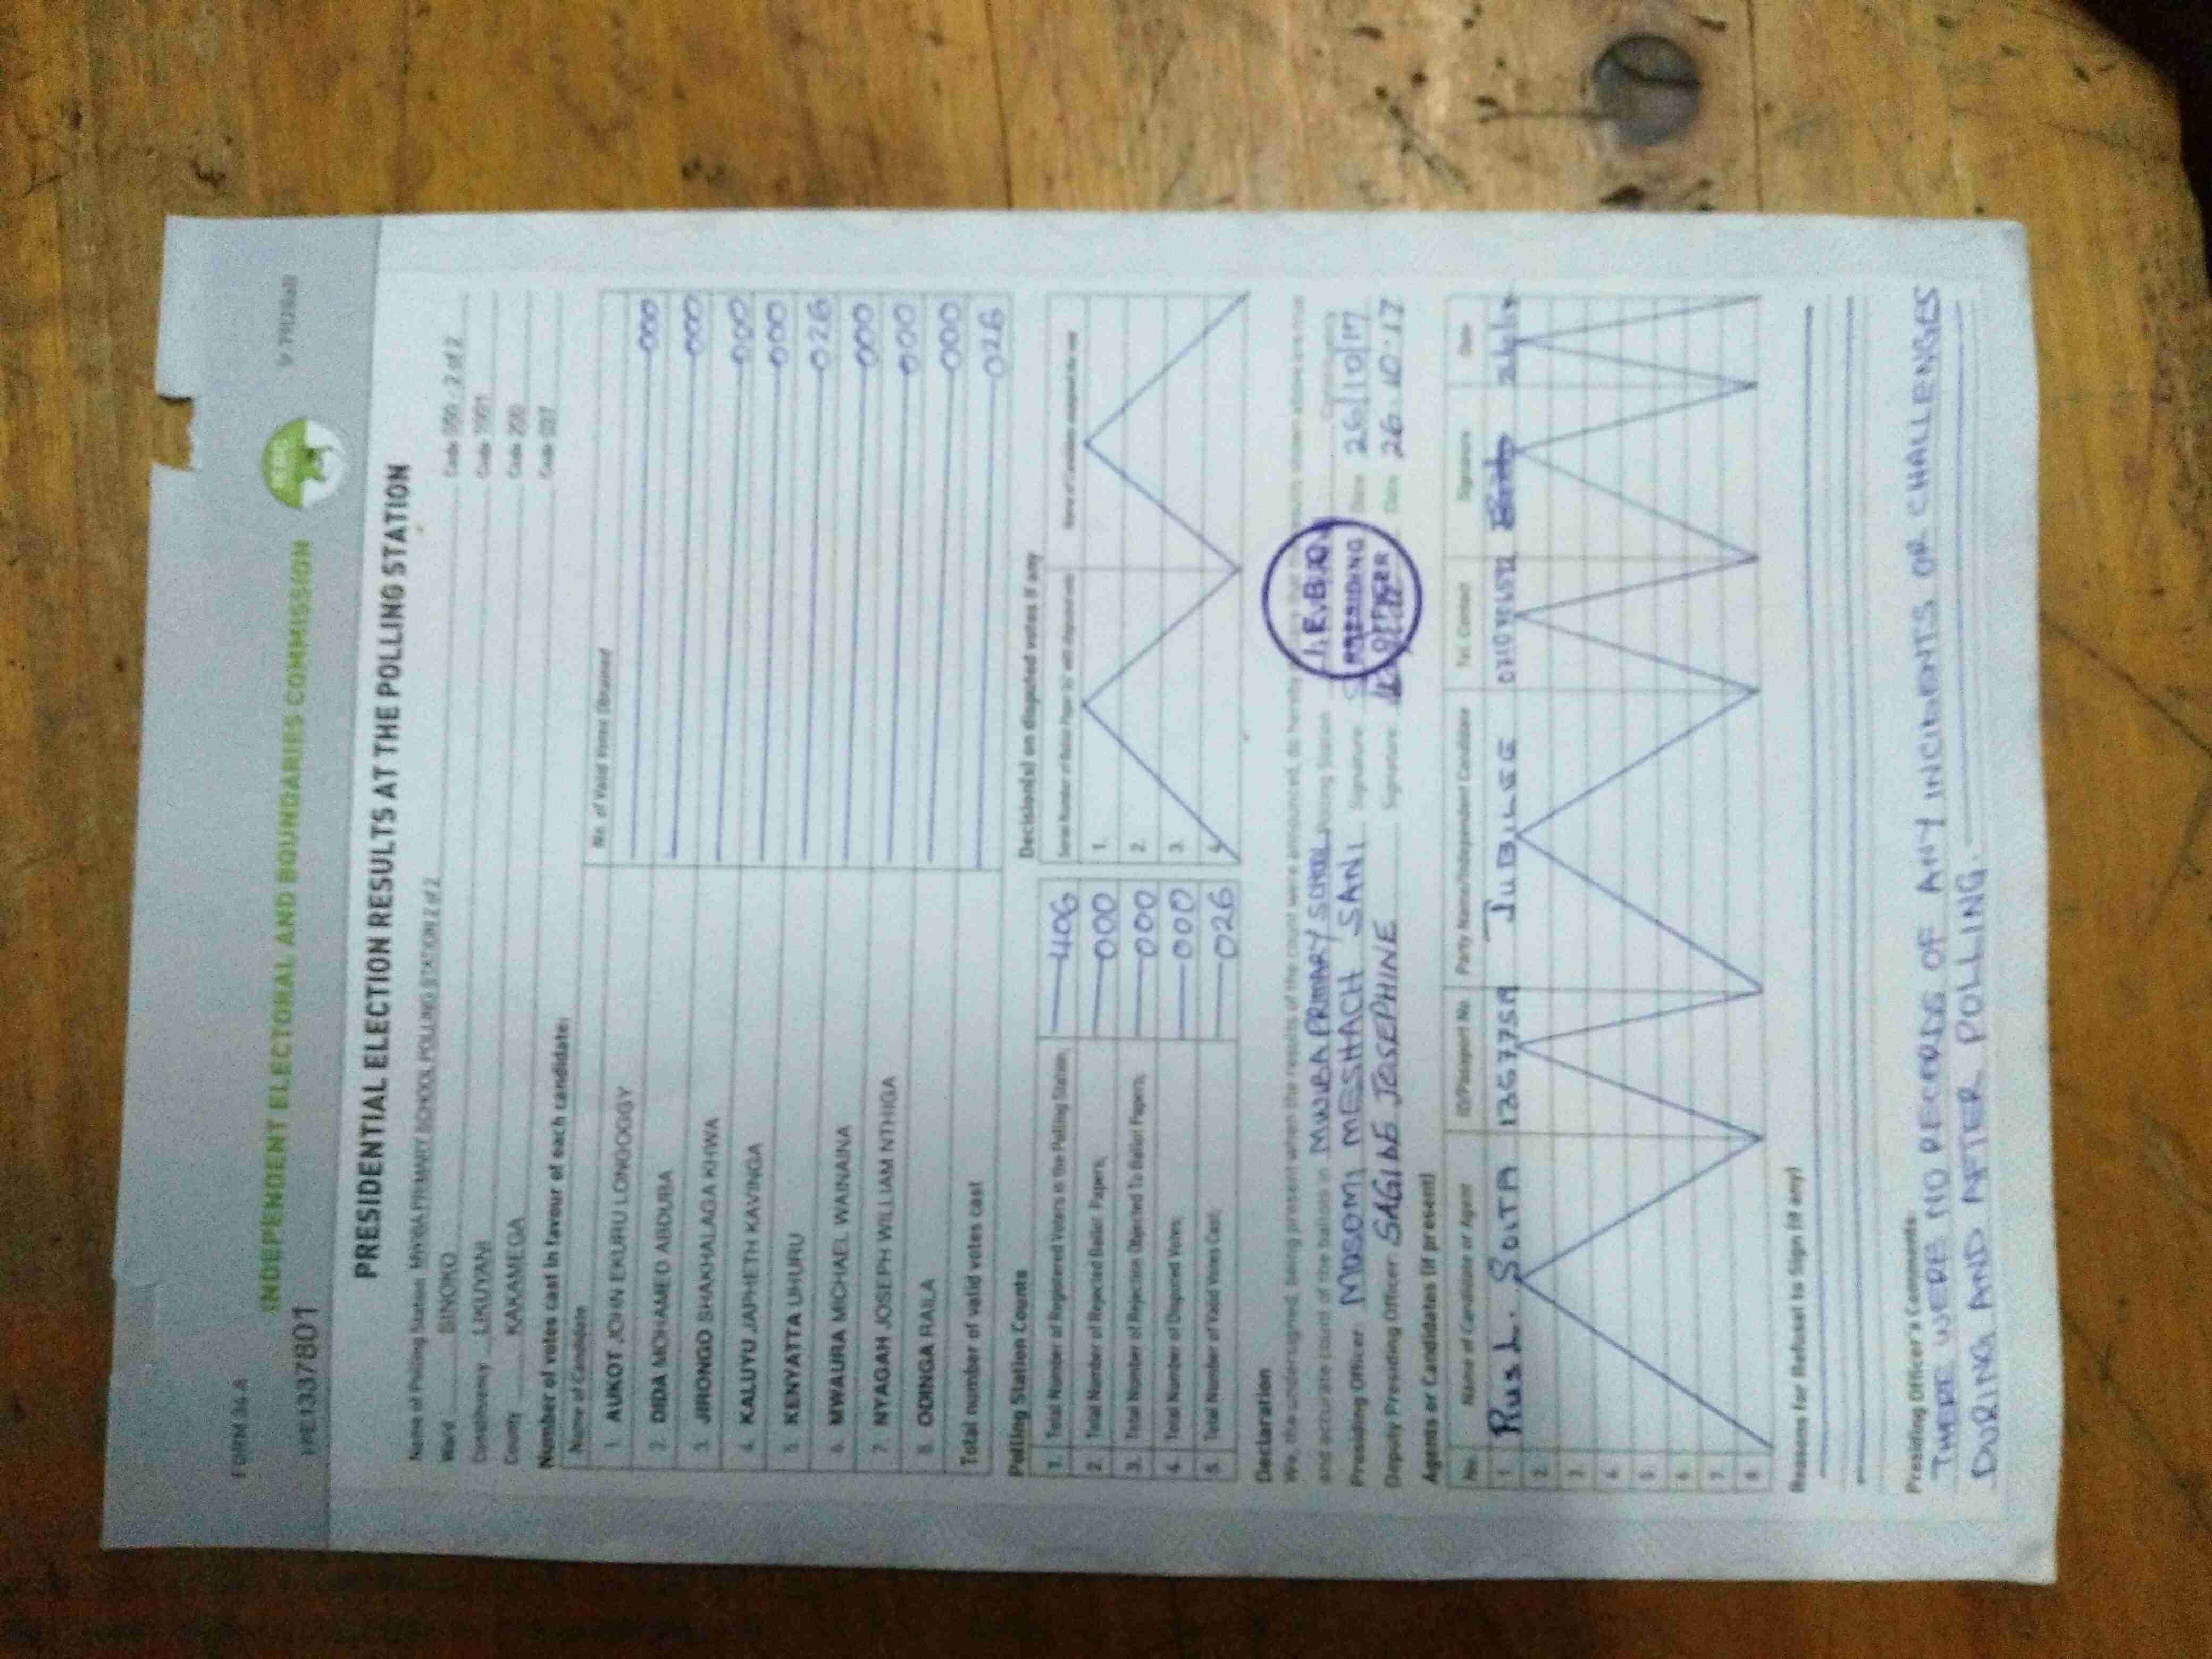 FORM 34 A
INDEPENDENT ELECTORAL AND BOUNDARIES COMMISSION
PRESIDENTIAL ELECTION RESULTS AT THE POLLING STATION
Name of Polling Station PRIMARY SCHOOL POLLING STATION 2 of 2 Code 050 - 2 of 2
Ward SINOKO Code
Constituency LIKUYANI Code 200
County KAKAMEGA Code 037
Number of votes cast in favour of each candidate:
Name of Candidate No. of Valid Votes Obtained
1. AUKOT JOHN EKURU LONGOGGY 000
2. DIDA MOHAMED ABDUBA 000
3. JIRONGO SHAKHALAGA KHWA 000
4. KALUYU JAPHETH KAVINGA 000
5. KENYATTA UHURU 026
6. MWAURA MICHAEL WAINAINA 000
7. NYAGAH JOSEPH WILLIAM NTHIGA 000
8. ODINGA RAILA 000
Total number of valid votes cast 026
Polling Station Counts
1. Total Number of Registered Voters in the Polling Station 406
2. Total Number of Rejected Ballot Papers 000
3. Total Number of Rejection Objected To Ballot Papers 000
4. Total Number of Disputed Votes 000
5. Total Number of Valid Votes Cast 026
Decision(s) on disputed votes if any
1.
2.
3.
4.
Declaration
We, the undersigned, being present when the results of the count were announced, do hereby
and accurate count of the ballots in MWBA PRIMARY SCHOOL Polling Station
Presiding Officer MOSOMI MESHACH SANI Signature Date 26/10/17
Deputy Presiding Officer SAGIDE JOSEPHINE Signature Date 26.10.17
I.E.B.C
PRESIDING
OFFICER
Agents or Candidates (if present)
No. Name of Candidate or Agent ID/Passport No. Party Name/Independent Candidate Tel. Contact Signature Date
1 SOITA JUBILEE
2.
3.
4.
5.
6.
7.
8.
Reasons for Refusal to Sign (if any)
Presiding Officer's Comments:
THERE WERE NO RECORDS OF ANY INCIDENTS OR CHALLENGES
DURING AND AFTER POLLING.